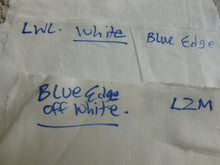 LWL. White Blue Edge
Blue Edge
off White. LZM